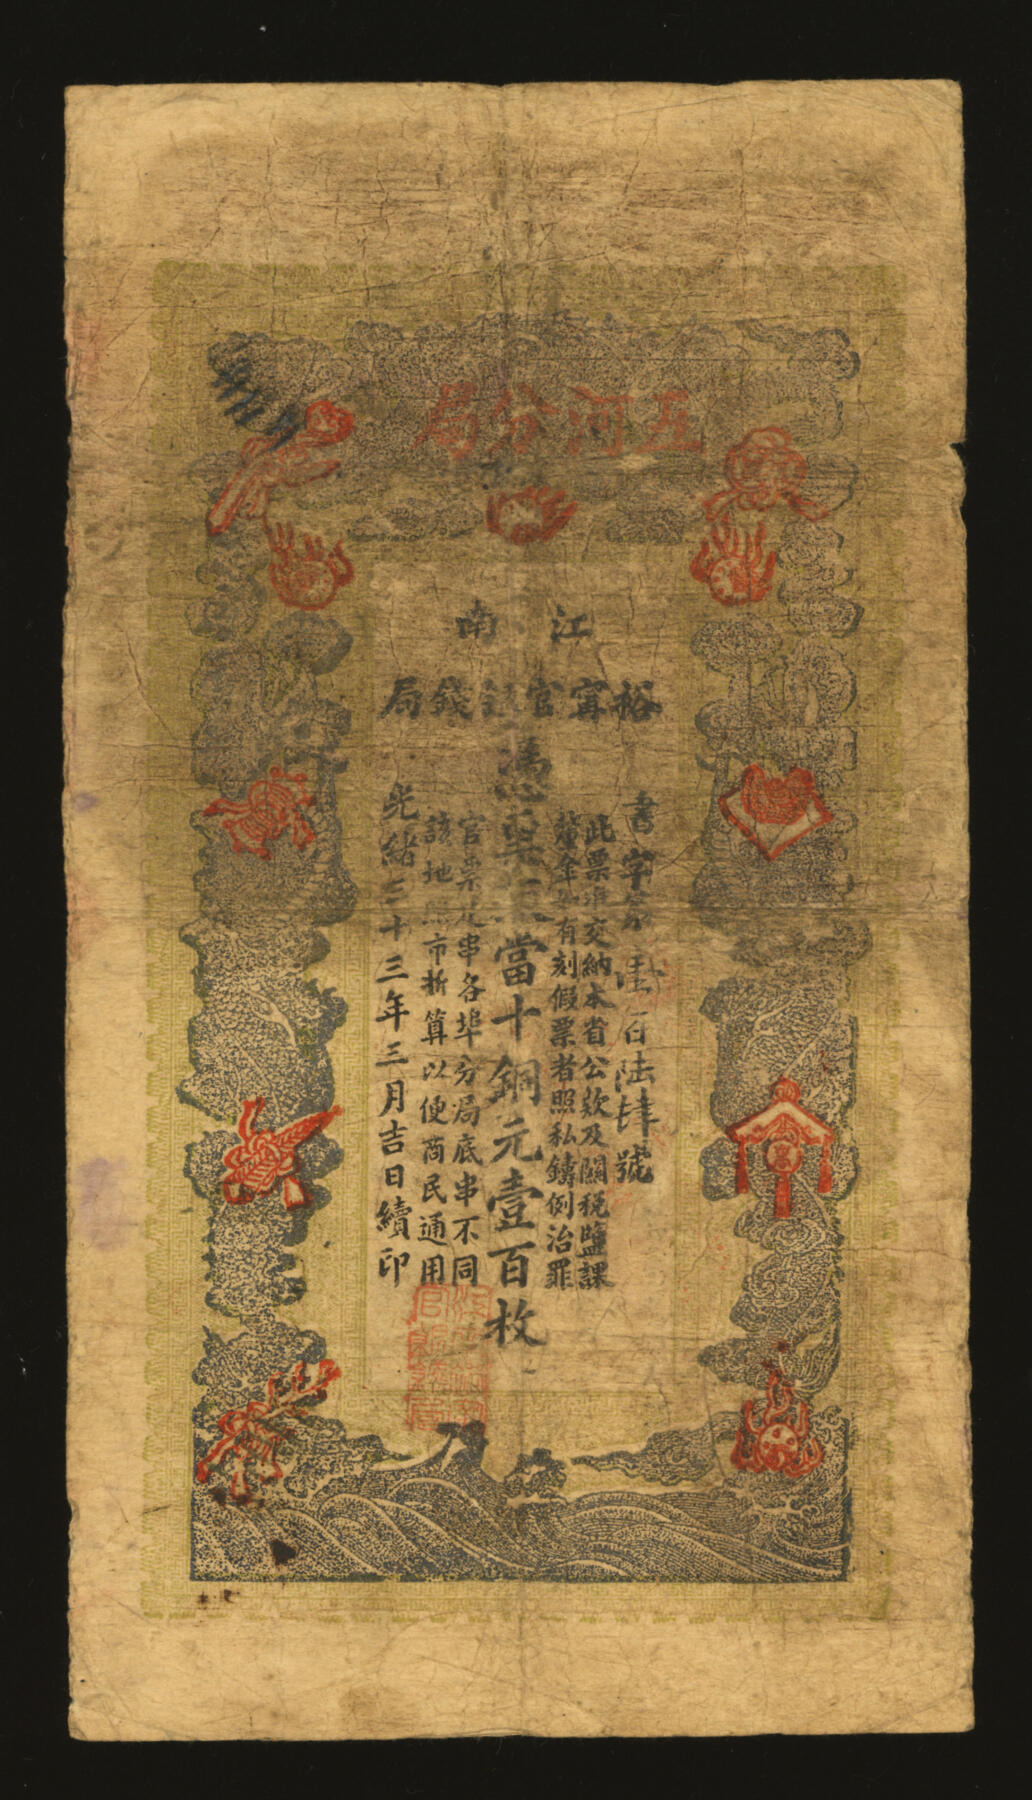 五河分局
江南
裕甯官銀錢局
書字第壹百陸肆號
此票准交納本省公欵及關稅鹽課
釐金如有刻假票者照私鑄例治罪
憑票取當十銅元壹百枚
官票足串各埠分局底串不同
該地照市折算以便商民通用
光緒三十三年三月吉日續印